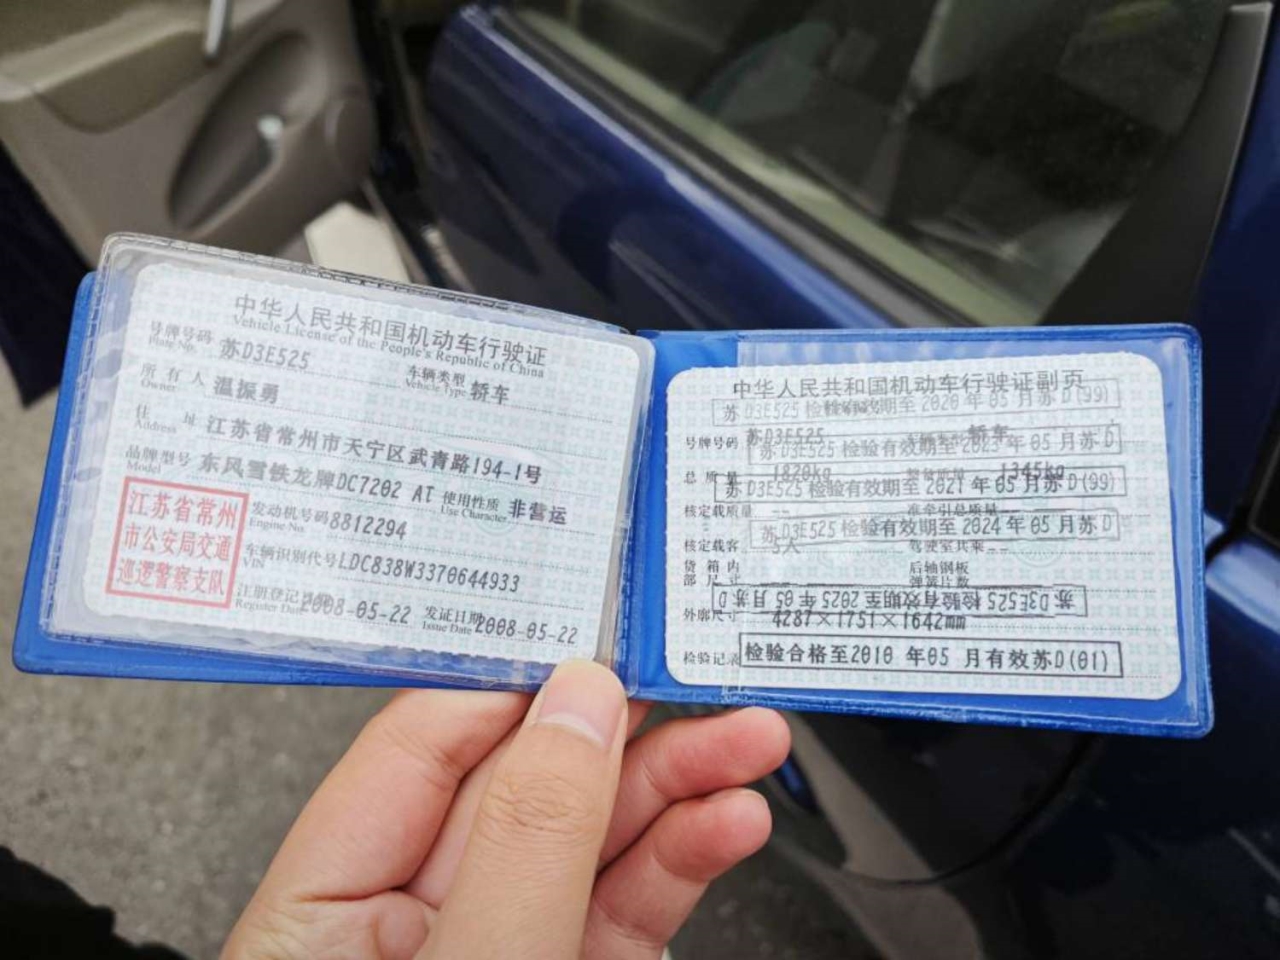 中华人民共和国机动车行驶证
Vehicle License of the People's Republic of China
号牌号码 苏D3E525 车辆类型 轿车
Plate No. Vehicle Type
所有人 温振勇
Owner
住址 江苏省常州市天宁区武青路194-1号
Address
品牌型号 东风雪铁龙牌DC7202 AT 使用性质 非营运
Model Use Character
江苏省常州
市公安局交通
巡逻警察支队
发动机号码 8812294
Engine No.
车辆识别代号 LDC838W3370644933
VIN
注册登记日期 2008-05-22 发证日期 2008-05-22
Register Date Issue Date
中华人民共和国机动车行驶证副页
苏D3E525 检验有效期至2020年05月苏D(99)
号牌号码 苏D3E525 轿车
苏D3E525 检验有效期至2023年05月苏D
总质量 1820kg 整备质量 1345kg
苏D3E525 检验有效期至2021年05月苏D(99)
核定载质量 -- 准牵引总质量 --
苏D3E525 检验有效期至2024年05月苏D
核定载客 5人 驾驶室共乘 --
货箱内部尺寸 -- 后轴钢板弹簧片数 --
苏D3E525 检验有效期至2025年05月苏D
外廓尺寸 4287×1751×1642mm
检验记录 检验合格至2010年05月有效苏D(01)